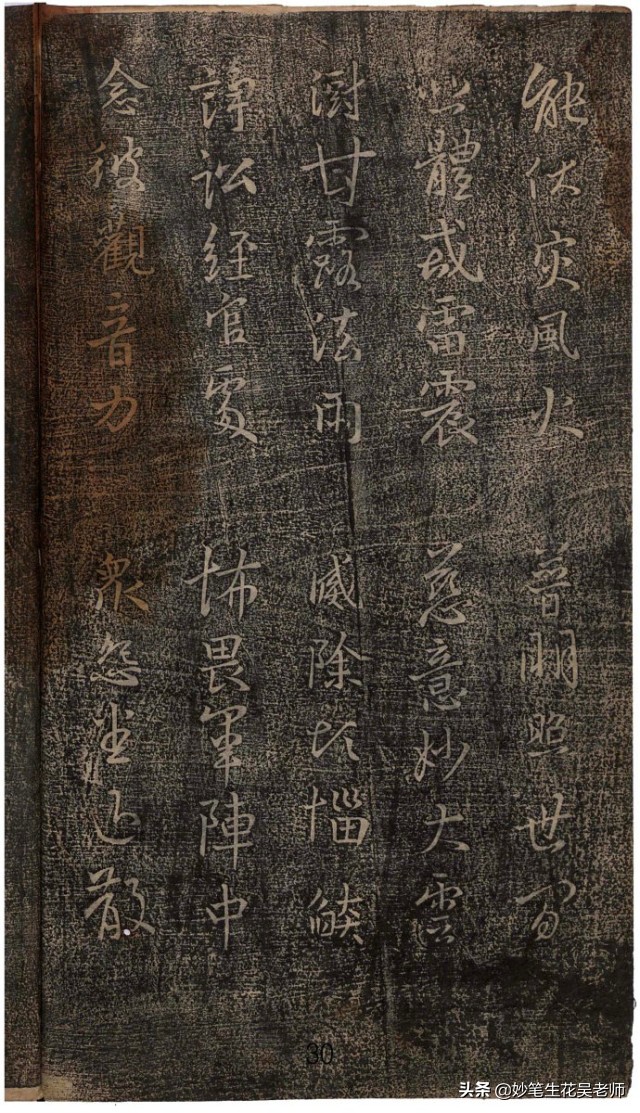 能伏灾風火 普明照世間
悲體戒雷震 慈意妙大雲
澍甘露法雨 滅除煩惱燄
諍訟經官處 怖畏軍陣中
念彼觀音力 衆怨悉退散
30
头条 @妙笔生花吴老师